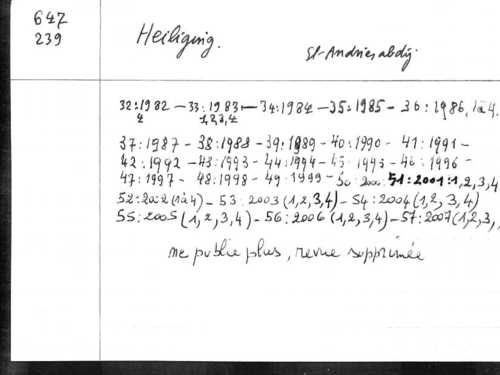 647
239
Heiliging.
St-Andriesabdij.
32:1982 - 33:1983 - 34:1984 - 35:1985 - 36:1986, 1à4.
4 1,2,3,4
37:1987 - 38:1988 - 39:1989 - 40:1990 - 41:1991 -
42:1992 - 43:1993 - 44:1994 - 45:1995 - 46:1996 -
47:1997 - 48:1998 - 49:1999 - 50:2000 51:2001:1,2,3,4
52:2002 (1à4) - 53:2003 (1,2,3,4) - 54:2004 (1,2,3,4)
55:2005 (1,2,3,4) - 56:2006 (1,2,3,4) - 57:2007 (1,2,3,
ne publie plus, revue supprimée